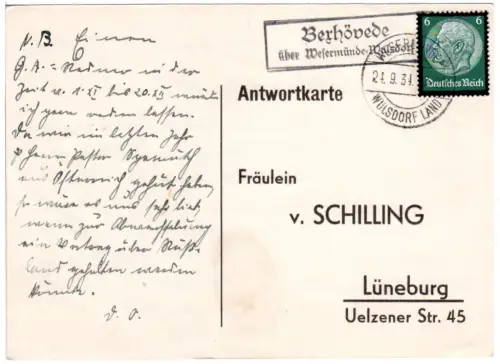 N.B. Einen
G.A.=Redner in der
Zeit v. 1. XI bis 20. XII würde
ich gern reden lassen.
Da wir im letzten Jahr
Herrn Pastor
aus Österreich gehört haben,
so wäre es uns sehr lieb
wenn zur Abwechselung
ein Vortrag über
land gehalten werden
könnte.
D. O.
Bexhövede
über Wesermünde-Wulsdorf
21.9.34
WULSDORF LAND
6 6
Deutsches Reich
Antwortkarte
Fräulein
v. SCHILLING
Lüneburg
Uelzener Str. 45